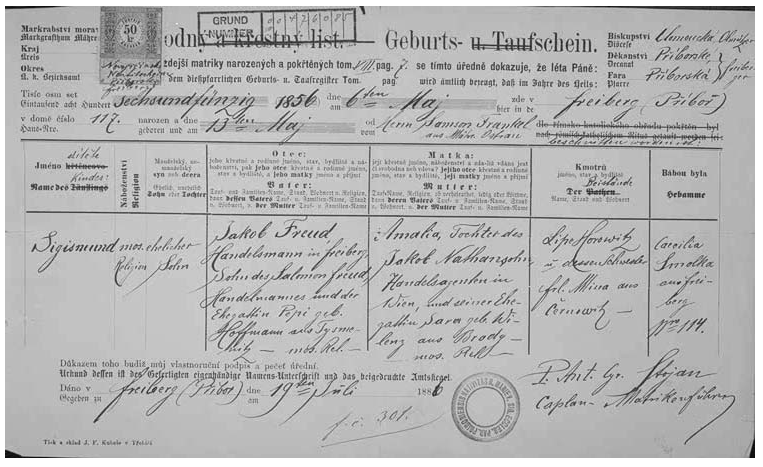 Markrabství morav
Markgrafthum Mähre
Kraj
Kreis
Okres
k. k. Bezirksamt
50
kr
GRUND
NUMMER
rodný a křestný list.
Geburts- u. Taufschein.
Biskupství
Diöcese
Olmücká Olmützer
Děkanství
Decanat
Příborské
Fara
Pfarre
Příborská
Freiberger
zdejší matriky narozených a pokřtěných tom. VIII. pag. 7. se tímto úředně dokazuje, že léta Páně:
dem dießpfarrlichen Geburts- und Taufregister Tom. Pag. wird ämtlich bezeugt, daß im Jahre des Heils:
Tisíc osm set
Eintausend acht Hundert
Sechsundfünzig 1856
dne
am
6ten Maj
zde v
hier in de
Freiberg (Příboř)
v domě číslo
Haus-Nro.
117.
narozen a dne
geboren und am
13ten Maj
od
von
Herrn Samson Frankel
aus Mähr. Ostrau
dle římsko katolického obřadu pokřtěn byl
nach römisch-katholischem Ritus getauft worden sei
beschnitten worden ist.
Jméno křtěnce
dítěte
Kindes
Name des Täuflings
Náboženství
Religion
Manželský, nemanželský
syn neb dcera
Ehelich, unehelich
Sohn oder Tochter
Otec:
jeho křestné a rodinné jméno, stav, bydliště a náboženství, pak jeho otce křestné a rodinné jméno, stav, bydliště, a jeho matky jméno a příjmí
Vater:
Tauf- und Familien-Name, Stand, Wohnort u. Religion, dann dessen Vaters Tauf- u. Familien-Name, Stand u. Wohnort, u. der Mutter Tauf- u. Familien-Name
Matka:
Mutter:
Kmotrů
jméno, stav, a bydliště
Beistände
Der Pathen
Name, Stand und Wohnort
Bábou byla
Hebamme
Sigismund
mos.
Religion
ehelicher
Sohn
Jakob Freud,
Handelsmann in Freiberg,
Sohn des Salomon Freud,
Handelmannes und der
Ehegattin Pepi geb.
Hoffmann aus Tysmenitz
— mos. Rel. —
Amalia, Tochter des
Jakob Nathansohn,
Handelsagenten in
Wien, und seiner Ehegattin
Sara geb. Wilenz
aus Brody —
mos. Rel.
Lipe Horowitz
u. dessen Schwester
frl. Mina aus
Černowitz —
Caecilia
Smolka
aus Freiberg
Nro 114.
Důkazem toho budiž můj vlastnoruční podpis a pečeť úřední.
Urkund dessen ist des Gefertigten eigenhändige Namens-Unterschrift und das beigedruckte Amtssiegel.
Dáno v
Gegeben zu
Freiberg (Příbor)
dne
am
19ten Juli
188
f. c. 301.
P. Ant. Gr. Stojan
Caplan — Matrikenführer
Tisk a sklad J. F. Kubeše v Třebíči